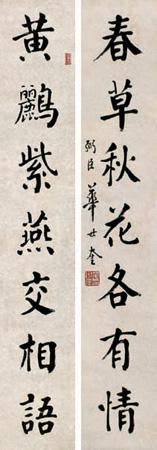 春草秋花各有情
弼臣 華世奎
黃鸝紫燕交相語